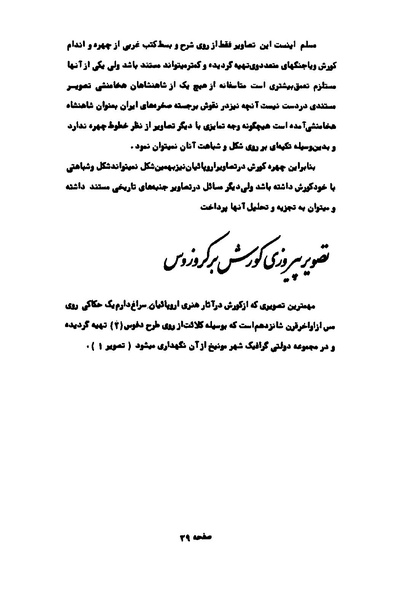 مسلم اینست این تصاویر فقط از روی شرح و بسط کتب غربی از چهره و اندام
کورش ویا جنگهای متعددوی تهیه گردیده و کمتر میتواند مستند باشد ولی یکی از آنها
مستلزم تعمق بیشتری است متاسفانه از هیچ یک از شاهنشاهان هخامنشی تصویر
مستندی در دست نیست آنچه نیز در نقوش برجسته صخره‌های ایران بعنوان شاهنشاه
هخامنشی آمده است هیچگونه وجه تمایزی با دیگر تصاویر از نظر خطوط چهره ندارد
و بدین‌وسیله تکیه‌ای بر روی شکل و شباهت آنان نمیتوان نمود .
بنابراین چهره کورش در تصاویر اروپائیان نیز بهمین شکل نمیتواند شکل و شباهتی
با خود کورش داشته باشد ولی دیگر مسائل در تصاویر جنبه‌های تاریخی مستند داشته
و میتوان به تجزیه و تحلیل آنها پرداخت
تصویر پیروزی کورش بر کروزوس
مهمترین تصویری که از کورش در آثار هنری اروپائیان سراغ داریم یک حکاکی روی
مس از اواخر قرن شانزدهم است که بوسیله کلائت از روی طرح دفوس (۲) تهیه گردیده
و در مجموعه دولتی گرافیک شهر مونیخ از آن نگهداری میشود ( تصویر ۱ ) .
صفحه ۳۹